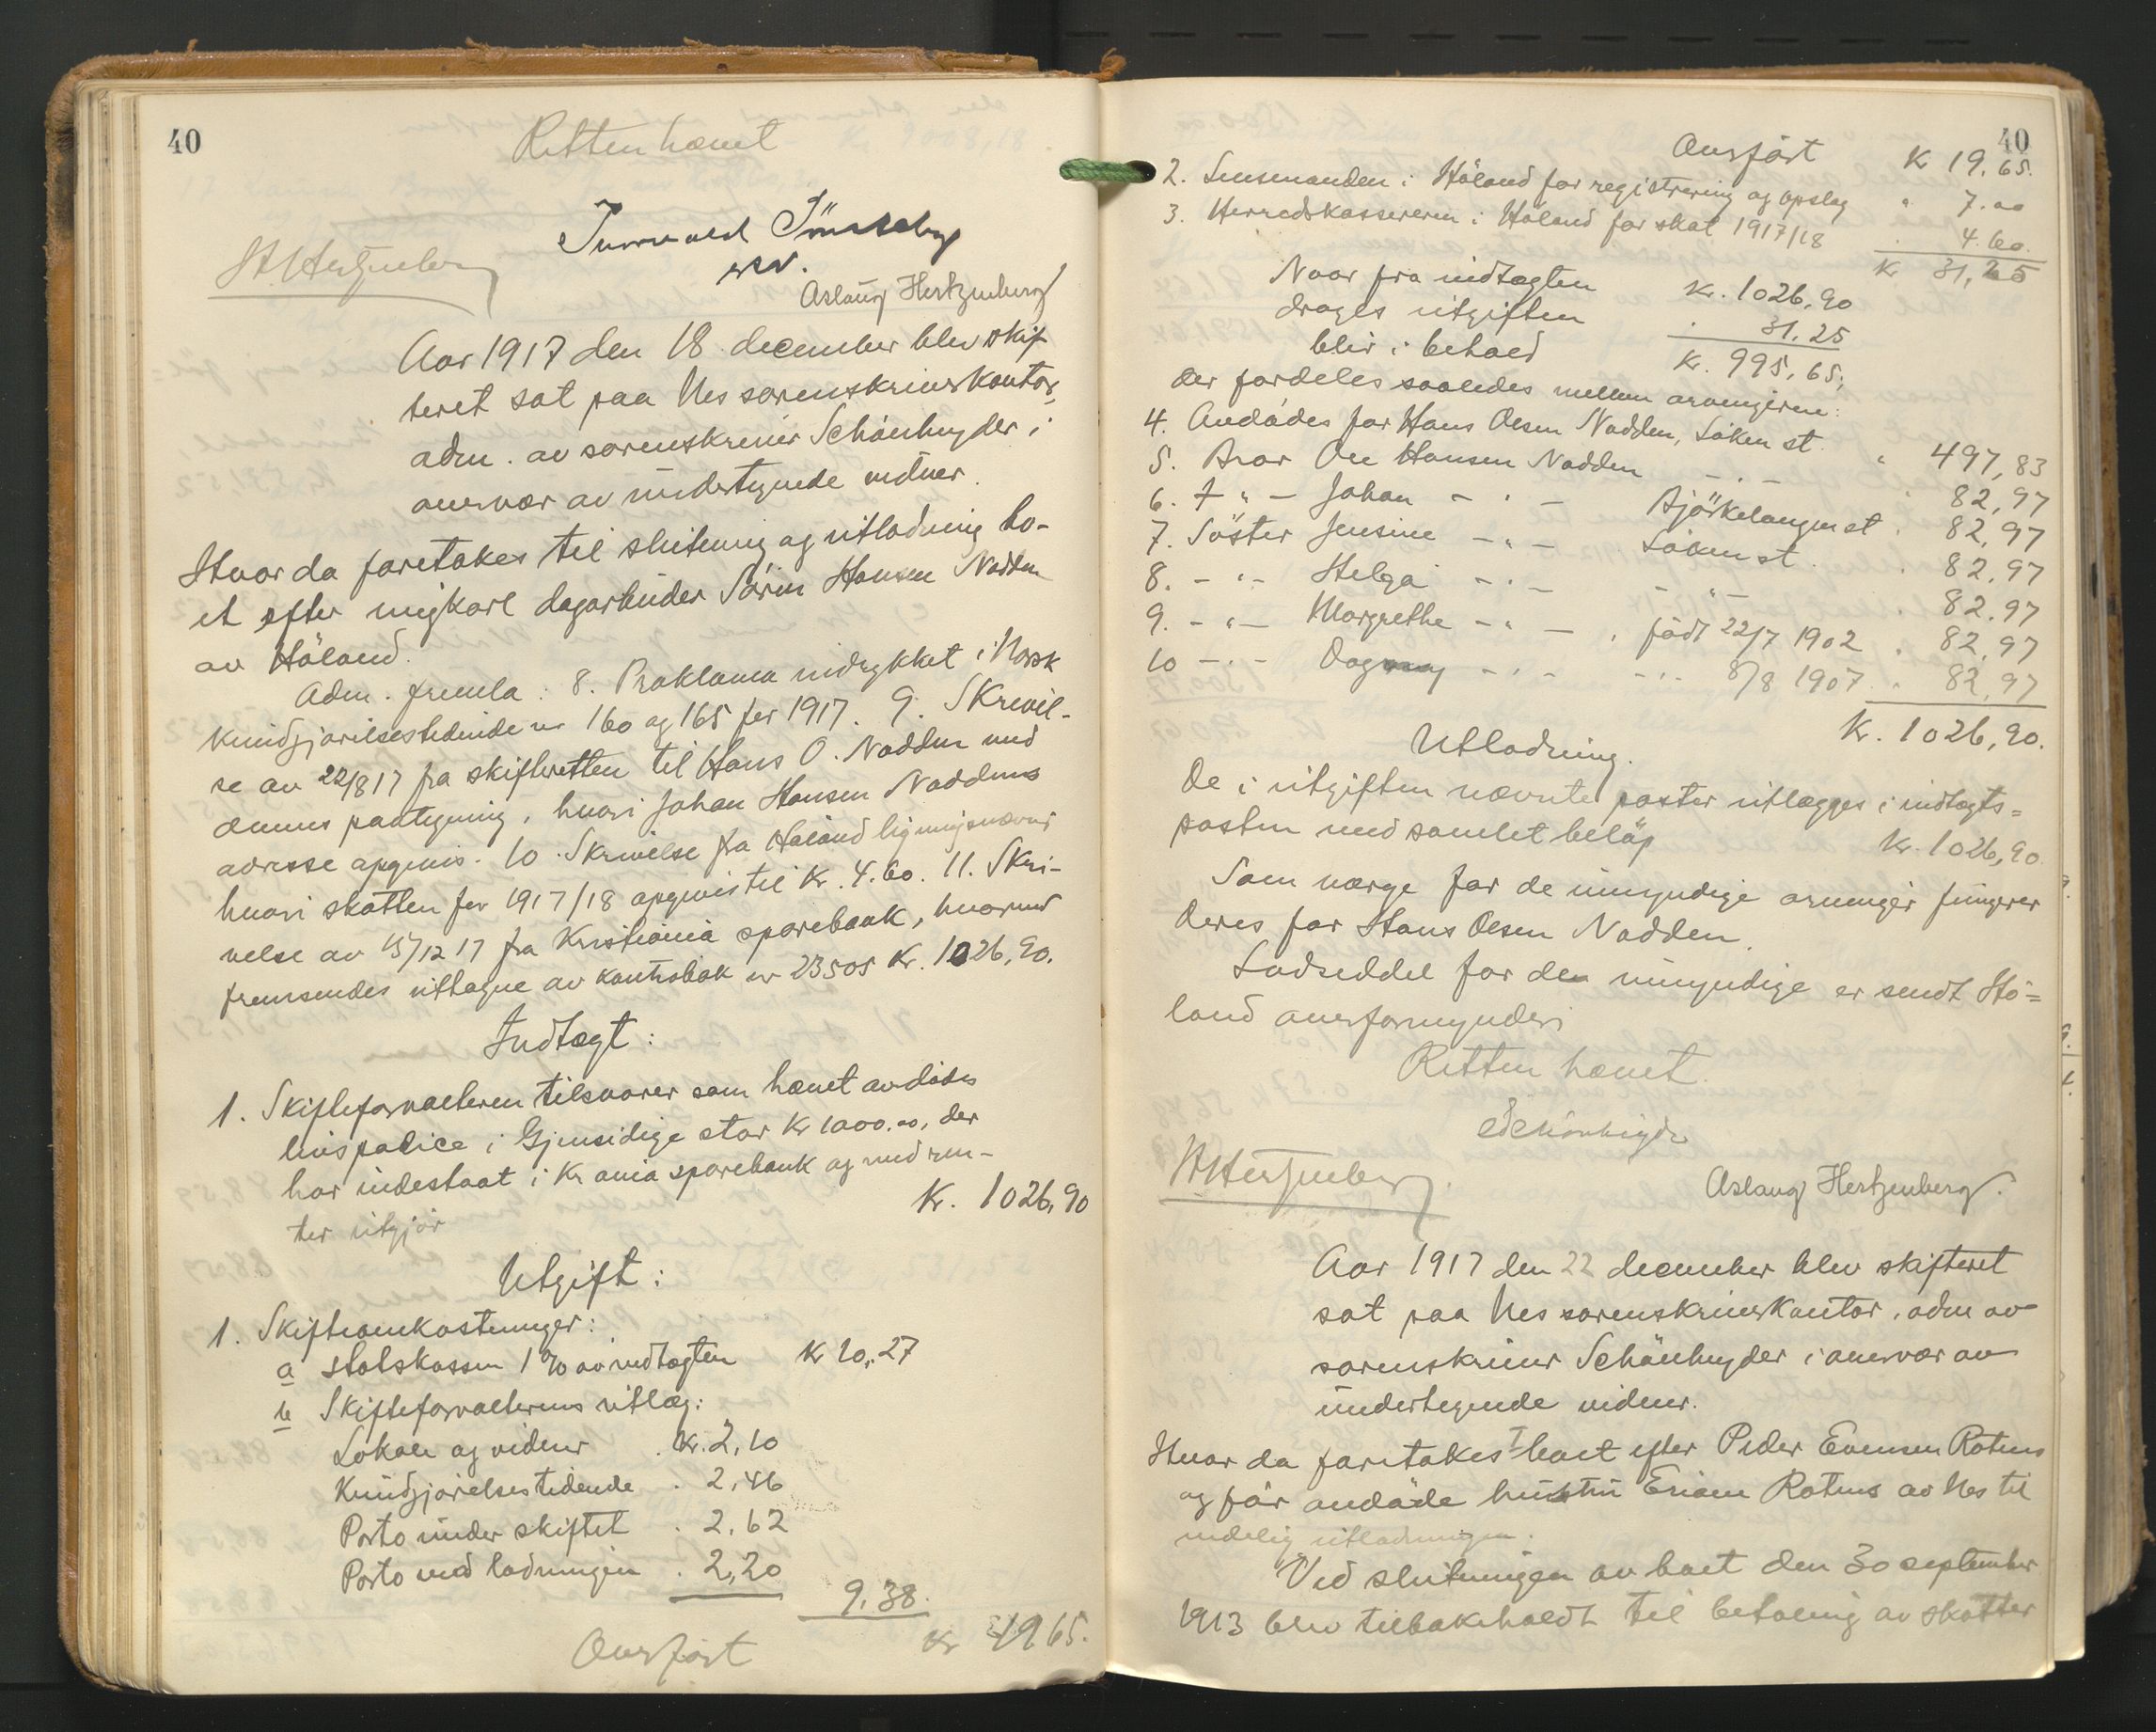 40
Retten hævet
H. Hertzenberg
Aslaug Hertzenberg
Aar 1917 den 18 december blev skif
teret sat paa Nes sorenskriverkontor,
adm. av sorenskriver Schönheyder i
overvær av undertegnede vidner.
Hvorda foretokes til slutning og utlodning bo-
et efter ungkarl dagarbeider Sörin Hansen Nadden
av Höland.
Adm. fremla: 8. Proklama indrykket i Norsk
Kundgjörelsestidende nr 160 og 165 for 1917. 9. Skrivel-
se av 22/8 17 fra skifteretten til Hans O. Nadden med
dennes paategning, hvori Johan Hansen Naddens
adresse opgives. 10. Skrivelse fra Höland ligningsnævnd
hvori skatten for 1917/18 opgives til kr. 4.60. 11. Skri-
velse av 15/12 17 fra Kristiania sparebank, hvorved
fremsendes uttagne av kontrabok nr 23505 kr. 1026,90.
Indtægt:
1. Skifteforvalteren tilsvarer som hævet avdödes
livspolice i Gjensidige stor kr 1000.00, der
har indestaat i Kr ania sparebank og med ren-
ter utgjör kr. 1026,90
Utgift:
1. Skifteomkostninger:
a Statskassen 1 % av indtægten kr 10,27
b Skifteforvalterens utlæg:
Lokale og vidner . kr. 2,10
Kundgjörelsestidende . 2,46
Porto under skiftet . 2,62
Porto ved lodningen . 2,20
9,38.
Overfört kr 19 65.
40
Overfört k 19,65.
2. Lensmanden i Höland for registrering og opslag " 7.00
3. Herredskassereren i Höland for skat 1917/18 . 4.60.
kr 31,25
Naar fra indtægten kr. 1026,90
drages utgiften . 31,25
blir i behold kr. 995,65,
der fordeles saaledes mellem arvingerne:
4. Avdödes far Hans Olsen Nadden, Löken st. " 497,83
5. Bror Ole Hansen Nadden - . - . 82,97
6. - " - Johan - . - Björkelangen st . 82,97
7. Söster Jensine - " - Löken st . . 82,97
8. - " - Helga - . - - " - . 82,97
9. - " - Margrethe - " - , född 22/7 1902 . 82,97
10 - . - Dagny - . - - . . 8/8 1907 . " 82,97
kr. 1026,90.
Utlodning.
De i utgiften nævnte poster utlægges i indtægts=
posten med samlet belöp kr. 1026,90
Som værge for de umyndige arvinger fungerer
deres far Hans Olsen Nadden.
Lodseddel for de umyndige er sendt Hö=
land overformynderi
Retten hævet.
Schönheyder
H. Hertzenberg.
Aslaug Hertzenberg.
Aar 1917 den 22 december blev skifteret
sat paa Nes sorenskriverkontor, adm av
sorenskriver Schönheyder i overvær av
undertegnede vidner.
Hvor da foretokes I boet efter Peder Evensen Rotnes
og för avdöde hustru Eriam Rotnes av Nes til
endelig utlodningen.
Ved slutningen av boet den 30 september
1913 blev tilbakeholdt til betaling av skatter